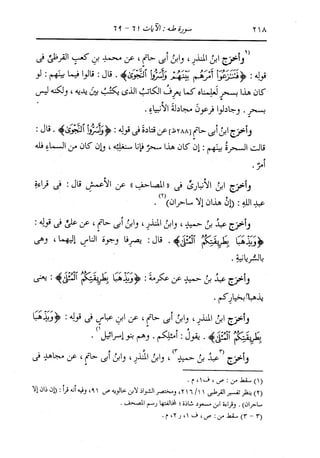 ٢١٨ سورة طه : الآيات ٦١ - ٦٩
(١وأخرج ابنُ المنذرِ، وابنُ أبى حاتمٍ، عن محمدِ بنِ كعبٍ القرظىِّ فى
قولِه : ﴿فَتَنَٰزَعُوٓا۟ أَمْرَهُم بَيْنَهُمْ وَأَسَرُّوا۟ ٱلنَّجْوَىٰ﴾. قال : قالوا فيما بينهم : لو
كان هذا بسحرٍ لعلِمناه كما يعرِفُ الكاتبُ الذى يكتُبُ بينَ يدَيه، ولكنه ليس
بسحرٍ. وجادلوا فرعونَ مجادلةَ الأنبياءِ.
وأخرَج ابنُ أبى حاتمٍ [٢٨٨ظ] عن قتادةَ فى قولِه : ﴿وَأَسَرُّوا۟ ٱلنَّجْوَىٰ﴾. قال :
قالت السحرةُ بينَهم : إن كان هذا سحرٌ فإنا سنغلِبُه، وإن كان من السماءِ فله
أمرٌ.
وأخرَج ابنُ الأنبارىِّ فى «المصاحفِ» عن الأعمشِ قال : فى قراءةِ
عبدِ اللهِ : (إنْ هذان إلا ساحران)(٢).
وأخرَج عبدُ بنُ حميدٍ، وابنُ المنذرِ، وابنُ أبى حاتمٍ، عن علىٍّ فى قولِه :
﴿وَيَذْهَبَا بِطَرِيقَتِكُمُ ٱلْمُثْلَىٰ﴾. قال : يصرِفا وجوهَ الناسِ إليهما، وهى
بالسُّريانيةِ.
وأخرَج عبدُ بنُ حميدٍ عن عكرمةَ : ﴿وَيَذْهَبَا بِطَرِيقَتِكُمُ ٱلْمُثْلَىٰ﴾ : يعنى
يذهبا بخيارِكم.
وأخرَج ابنُ المنذرِ، وابنُ أبى حاتمٍ، عن ابنِ عباسٍ فى قولِه : ﴿وَيَذْهَبَا
بِطَرِيقَتِكُمُ ٱلْمُثْلَىٰ﴾. يقولُ : أمثلِكم. وهم بنو إسرائيلَ١).
وأخرَج (٣عبدُ بنُ حميدٍ٣)، وابنُ المُنذرِ، وابنُ أبى حاتمٍ، عن مجاهدٍ فى
(١) سقط من : ص، ف١، م.
(٢) ينظر تفسير القرطبى ١١/ ٢١٦، ومختصر الشواذ لابن خالويه ص ٩١، وفيه أنه قرأ : (إن ذان إلا
ساحران). وقراءة ابن مسعود شاذة؛ لمخالفتها رسم المصحف.
(٣ - ٣) سقط من : ص، ف١، ر٢، م.